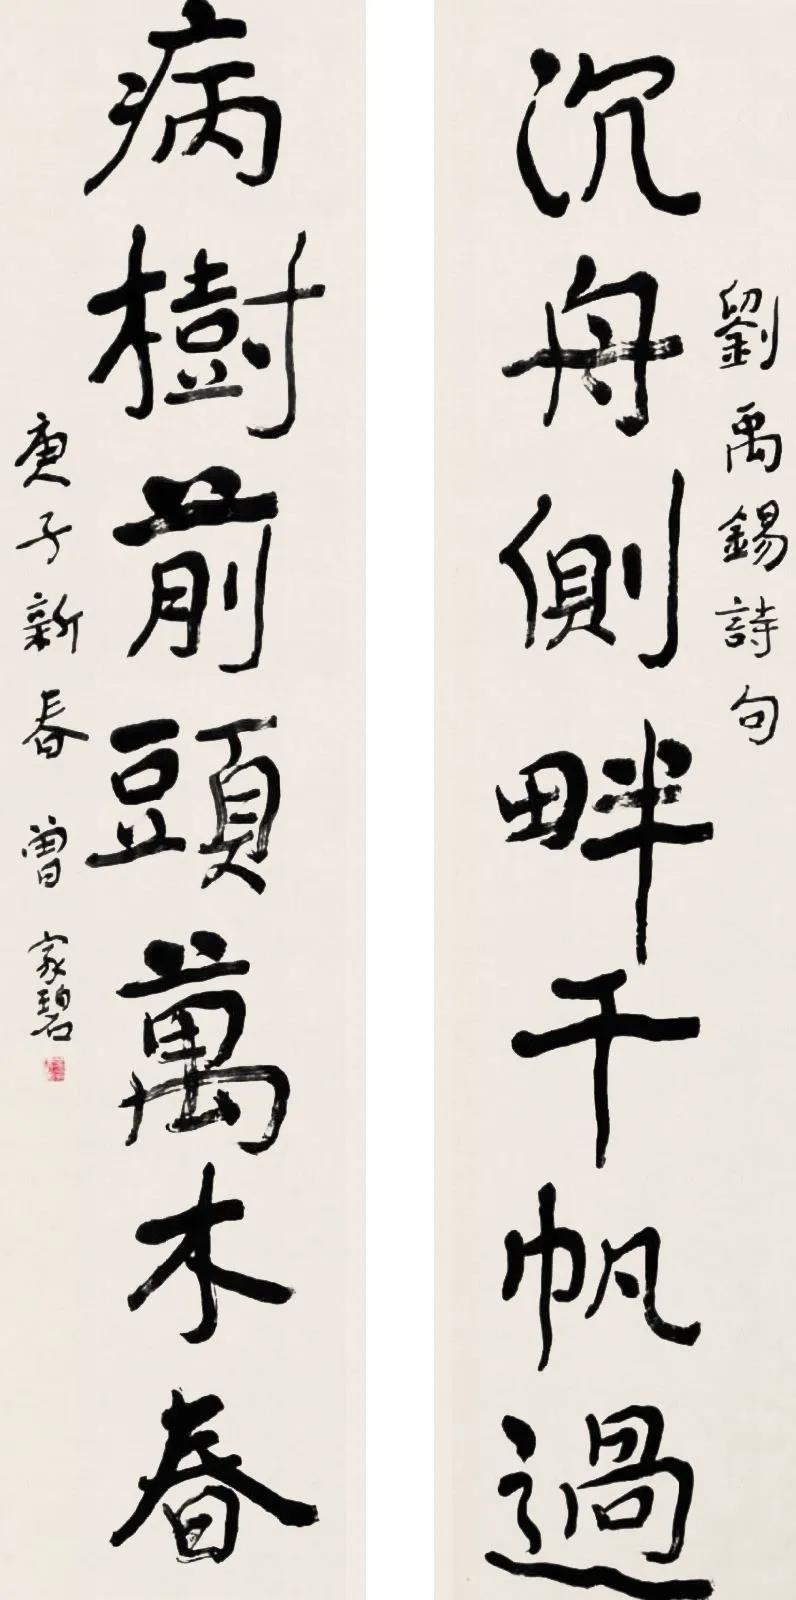 劉禹錫詩句
沉舟側畔千帆過
病樹前頭萬木春
庚子新春曾家碧